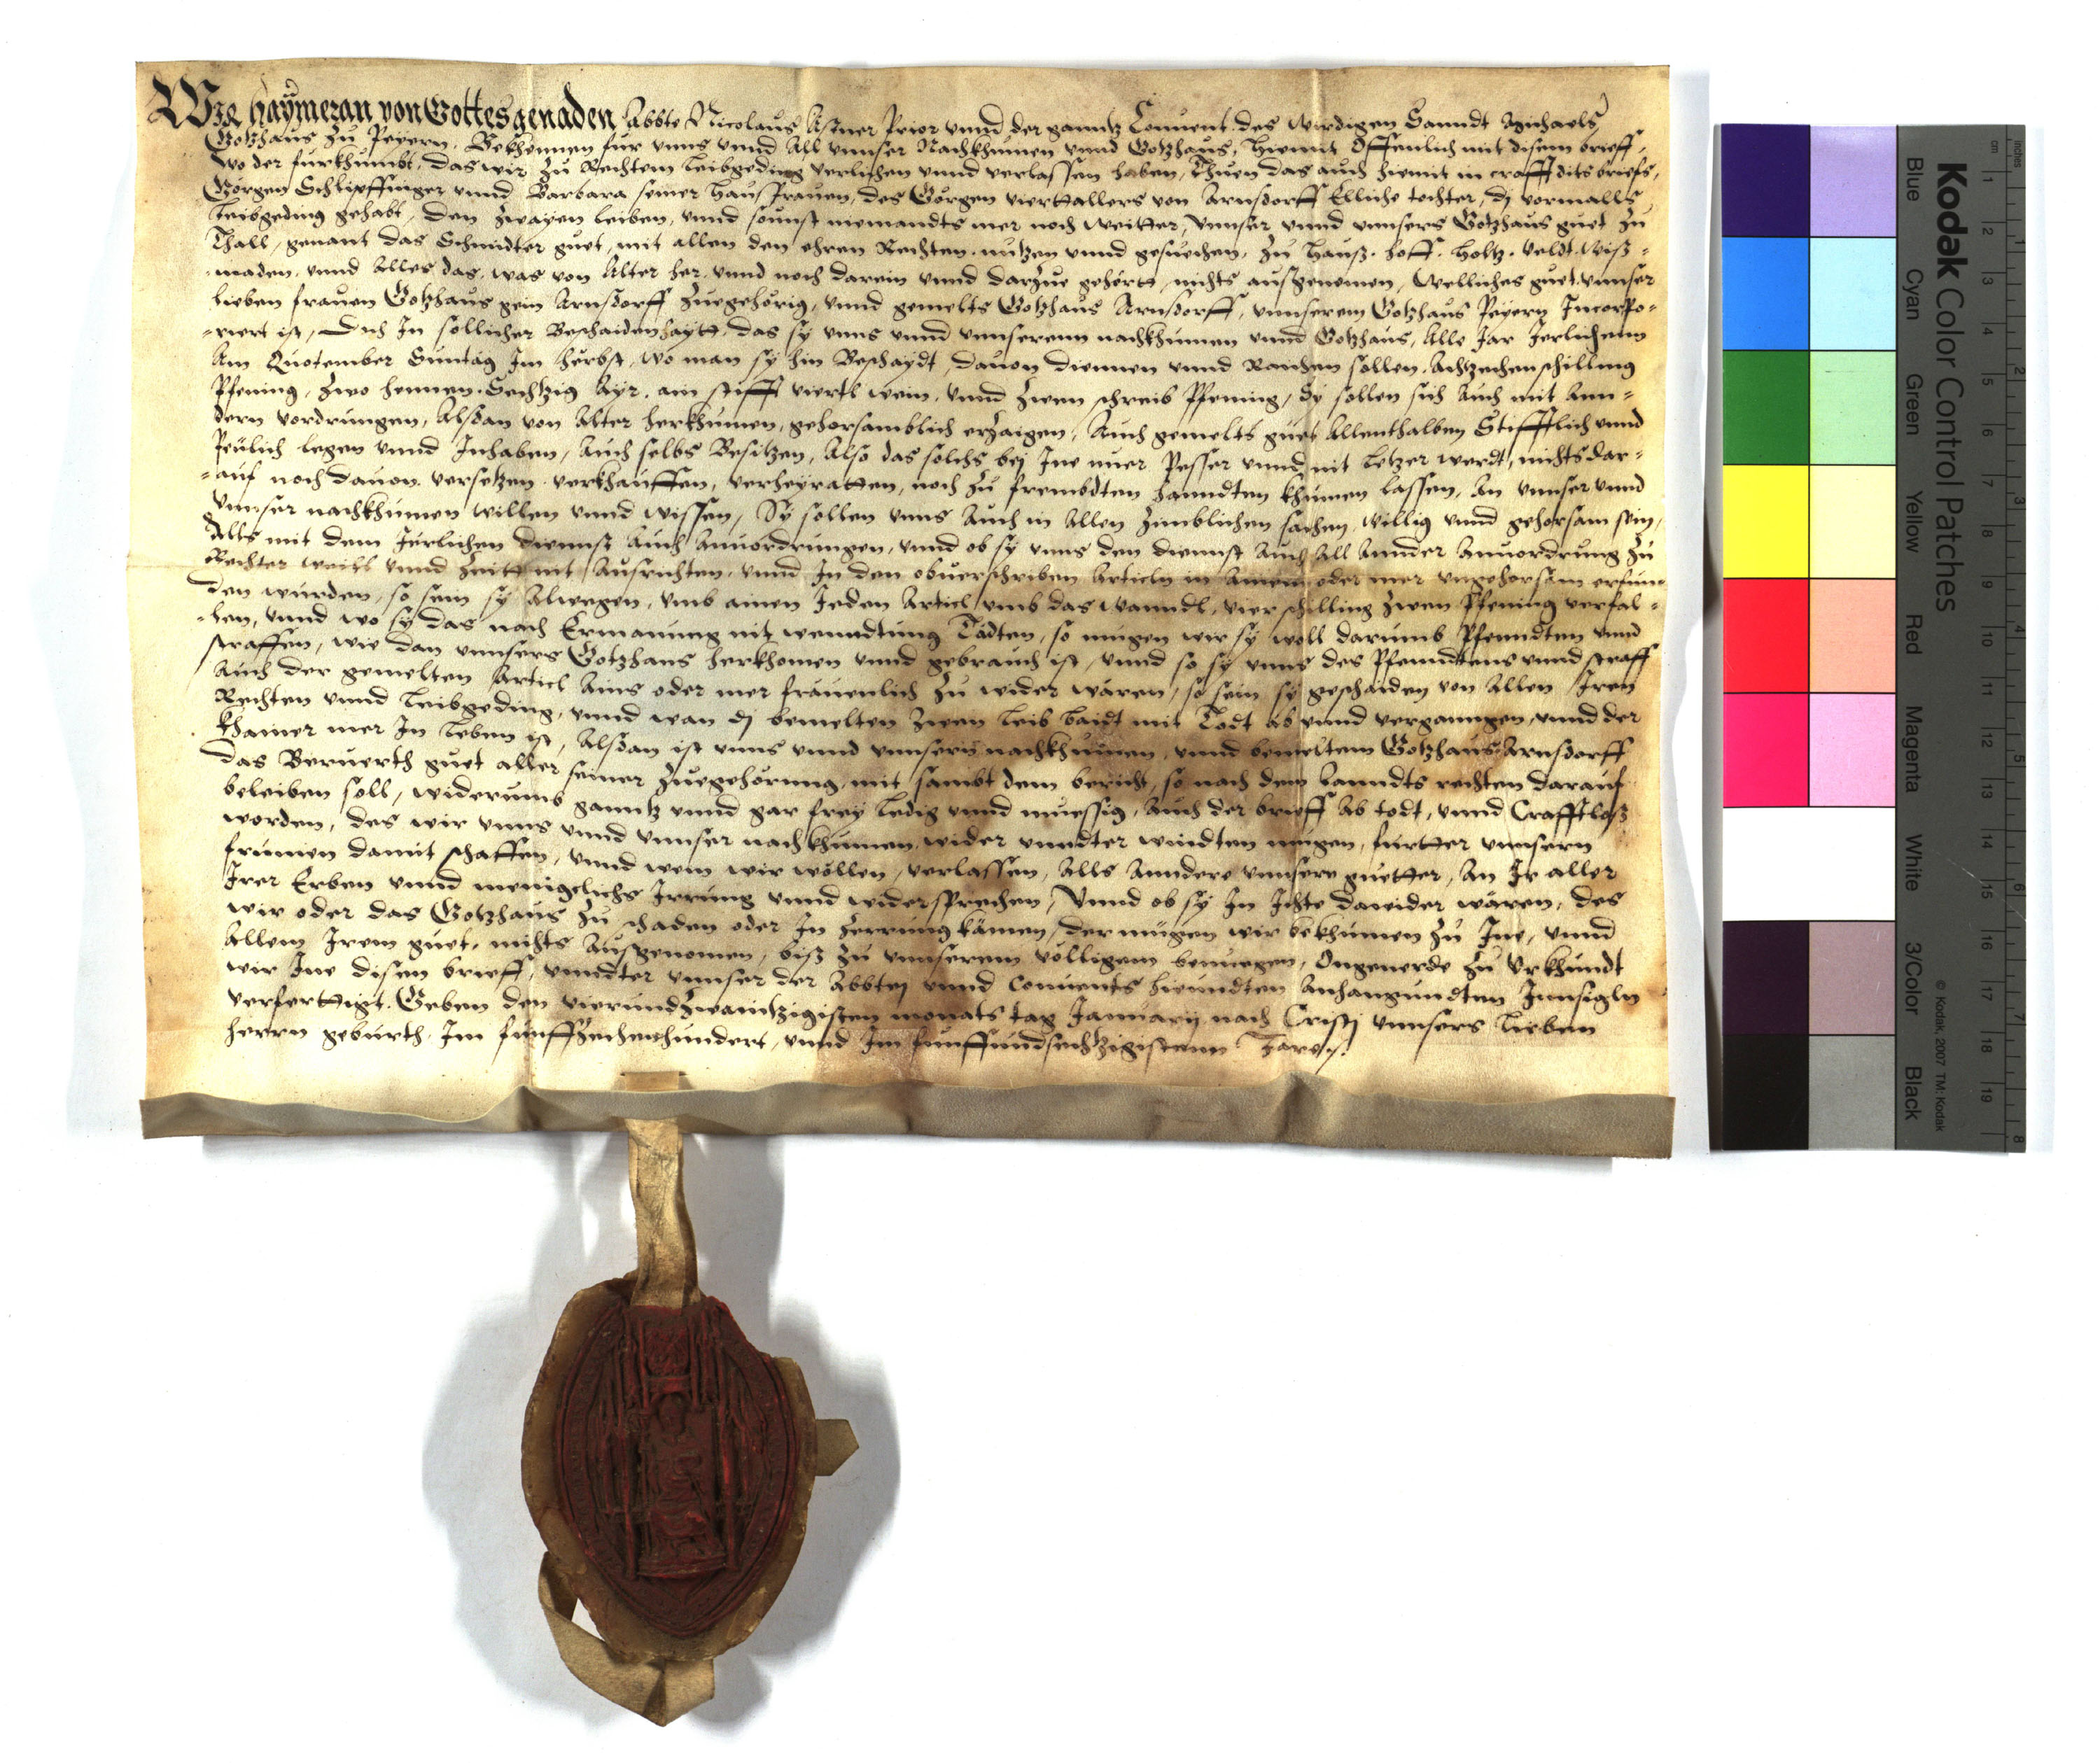 Wir Haÿmeran von Gottes genaden Abbte Nicolaus Astner Prior vnnd der ganntz Conuent des wirdigen Sanndt Michaels
Gotzhaus zu Peyern. Bekhennen für vnns vnnd All vnnser Nachkhumen vnnd Gotzhaus, hiemit Offenlich mit disem brieff,
wo der furkhumbt, das wir zu Rechtem Leibgeding verlichen vnnd verlassen haben, Thuen das auch hiemit in crafft dits briefs,
Görgen Schlipffinger vnnd Barbara seiner hausfrauen, des Görgen vierttallers von Arnsdorff Elliche tochter, dj vormalls
leibgeding gehabt, den zwayen leiben, vnnd sounst niemandts mer noch weitter, Vnnser vnnd vnnsers Gotzhaus guet zu
Thall, genant das Schmidter guet, mit allen den ehren Rechten. nutzen vnnd gesuechen, zu hauß. hoff. holtz. veldt. wiß-
maden. vnnd Alles das, was von Alter her, vnnd noch darein vnnd darzue gehört, nichts ausgenomen, Welliches guet vnnser
lieben frauen Gotzhaus gein Arnsdorff zuegehörig, vnnd gemelts Gotzhaus Arnsdorff, vnnserem Gotzhaus Peyern Incorpo-
-riert ist, Duch In sollicher Beschaidenhaytt, das sy vnns vnnd vnnserenn nachkhumen vnnd Gotzhaus, Alle Jar Jerlichenn
Am Quotember Suntag Im herbst, wo man sy hin Beschaydt, dauon diennen vnnd Raichen sollen, Achtzechen schilling
Pfening, zwo hennen. Sechtzig Ayr. ain stifft viertl wein, vnnd zwen schreib Pfening, Sy sollen sich Auch mit Ann-
dern vordrungen, Alsdan von Alter herkhumen, gehorsamblich erzaigen, Auch gemelts guet Allenthalben Stifftlich vnnd
Peulich legen vnnd Inhaben, Auch selbs Besitzen, Also das solchs bej Ine nuer Pesser vnnd nit letzer werdt, nichts dar-
-auf noch dauon versetzen. verkhauffen, verheyratten, noch zu frembdten hanndten khumen lassen, An vnnser vnnd
vnnser nachkhumen willen vnnd wissen, Sy sollen vnns Auch in Allen zimblichen sachen, willig vnnd gehorsam sein,
Alls mit dem Järlichen diennst Auch Anuordrungen, vnnd ob sy vnns den diennst Auch All Annder Anuordrung zu
Rechter weill vnnd Zeitt nit Ausrichten. vnnd In den obuerschriben Articln in Ainem oder mer vngehorsam erfun-
den wurden, so sein sy Alwegen, vmb ainen Jeden Articl vmb das wanndl, vier schilling zwen Pfening verfal-
-len, vnnd wo sy das nach Ermanung nit wenndtung Tädten, so mugen wir sy woll darumb Pfenndten vnnd
straffen, wie dan vnnsers Gotzhaus herkhomen vnnd gebrauch ist, vnnd so sy vnns des Pfenndtens vnnd straff
Auch der gemelten Articl Ains oder mer frauenlich zu wider wären, so sein sy geschaiden von Allen Iren
Rechten vnnd Leibgeding, vnnd wan dj bemelten zwen leib baidt mit Todt ab vnnd verganngen, vnnd der
khainer mer In leben ist, Alsdan ist vnns vnnd vnnsern nachkhumen, vnnd bemeltem Gotzhaus Arnsdorff
das Beruerth guet aller seiner zuegehörung, mit sambt dem bericht, so nach dem lanndts rechten darauf
beleiben soll, widerumb ganntz vnnd gar frey ledig vnnd muessig, Auch der brieff Ab todt, vnnd Crafftloß
worden, des wir vnns vnnd vnnser nachkhumen, wider vnndter windten mugen, further vnnsern
frumen damit schaffen, vnnd wem wir wöllen, verlassen, Alls Anndere vnnsere guetter, An Ir aller
Irer Erben vnnd menigclichs Irrung vnnd widersprechen, Vnnd ob sy In Ichte dawider wären, des
wir oder das Gotzhaus zu schaden oder In Zerrung kämen, der mügen wir bekhumen zu Ine, vnnd
Allem Irem guet, nichts Ausgenomen, biß zu vnnserem völligem benuegen, Ongeuerde zu Vrkhundt
wir Ine disen brieff, vnndter vnnser der Abbtej vnnd Conuents hieundten Anhangundten Innsigln
verferttigt. Geben den vierundzwaintzigisten monats tag Januarij nach Cristj vnnsers lieben
herrn geburth. Im funffzechenhundert, vnnd Im funffundsechtzigistenn Jares.
Kodak Color Control Patches
Blue Cyan Green Yellow Red Magenta White 3/Color Black
© Kodak, 2007 TM: Kodak
cm 1 2 3 4 5 6 7 8 9 10 11 12 13 14 15 16 17 18 19
inches 1 2 3 4 5 6 7 8